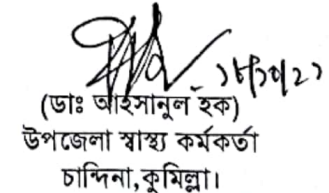 (ডাঃ আহসানুল হক)
উপজেলা স্বাস্থ্য কর্মকর্তা
চান্দিনা, কুমিল্লা।